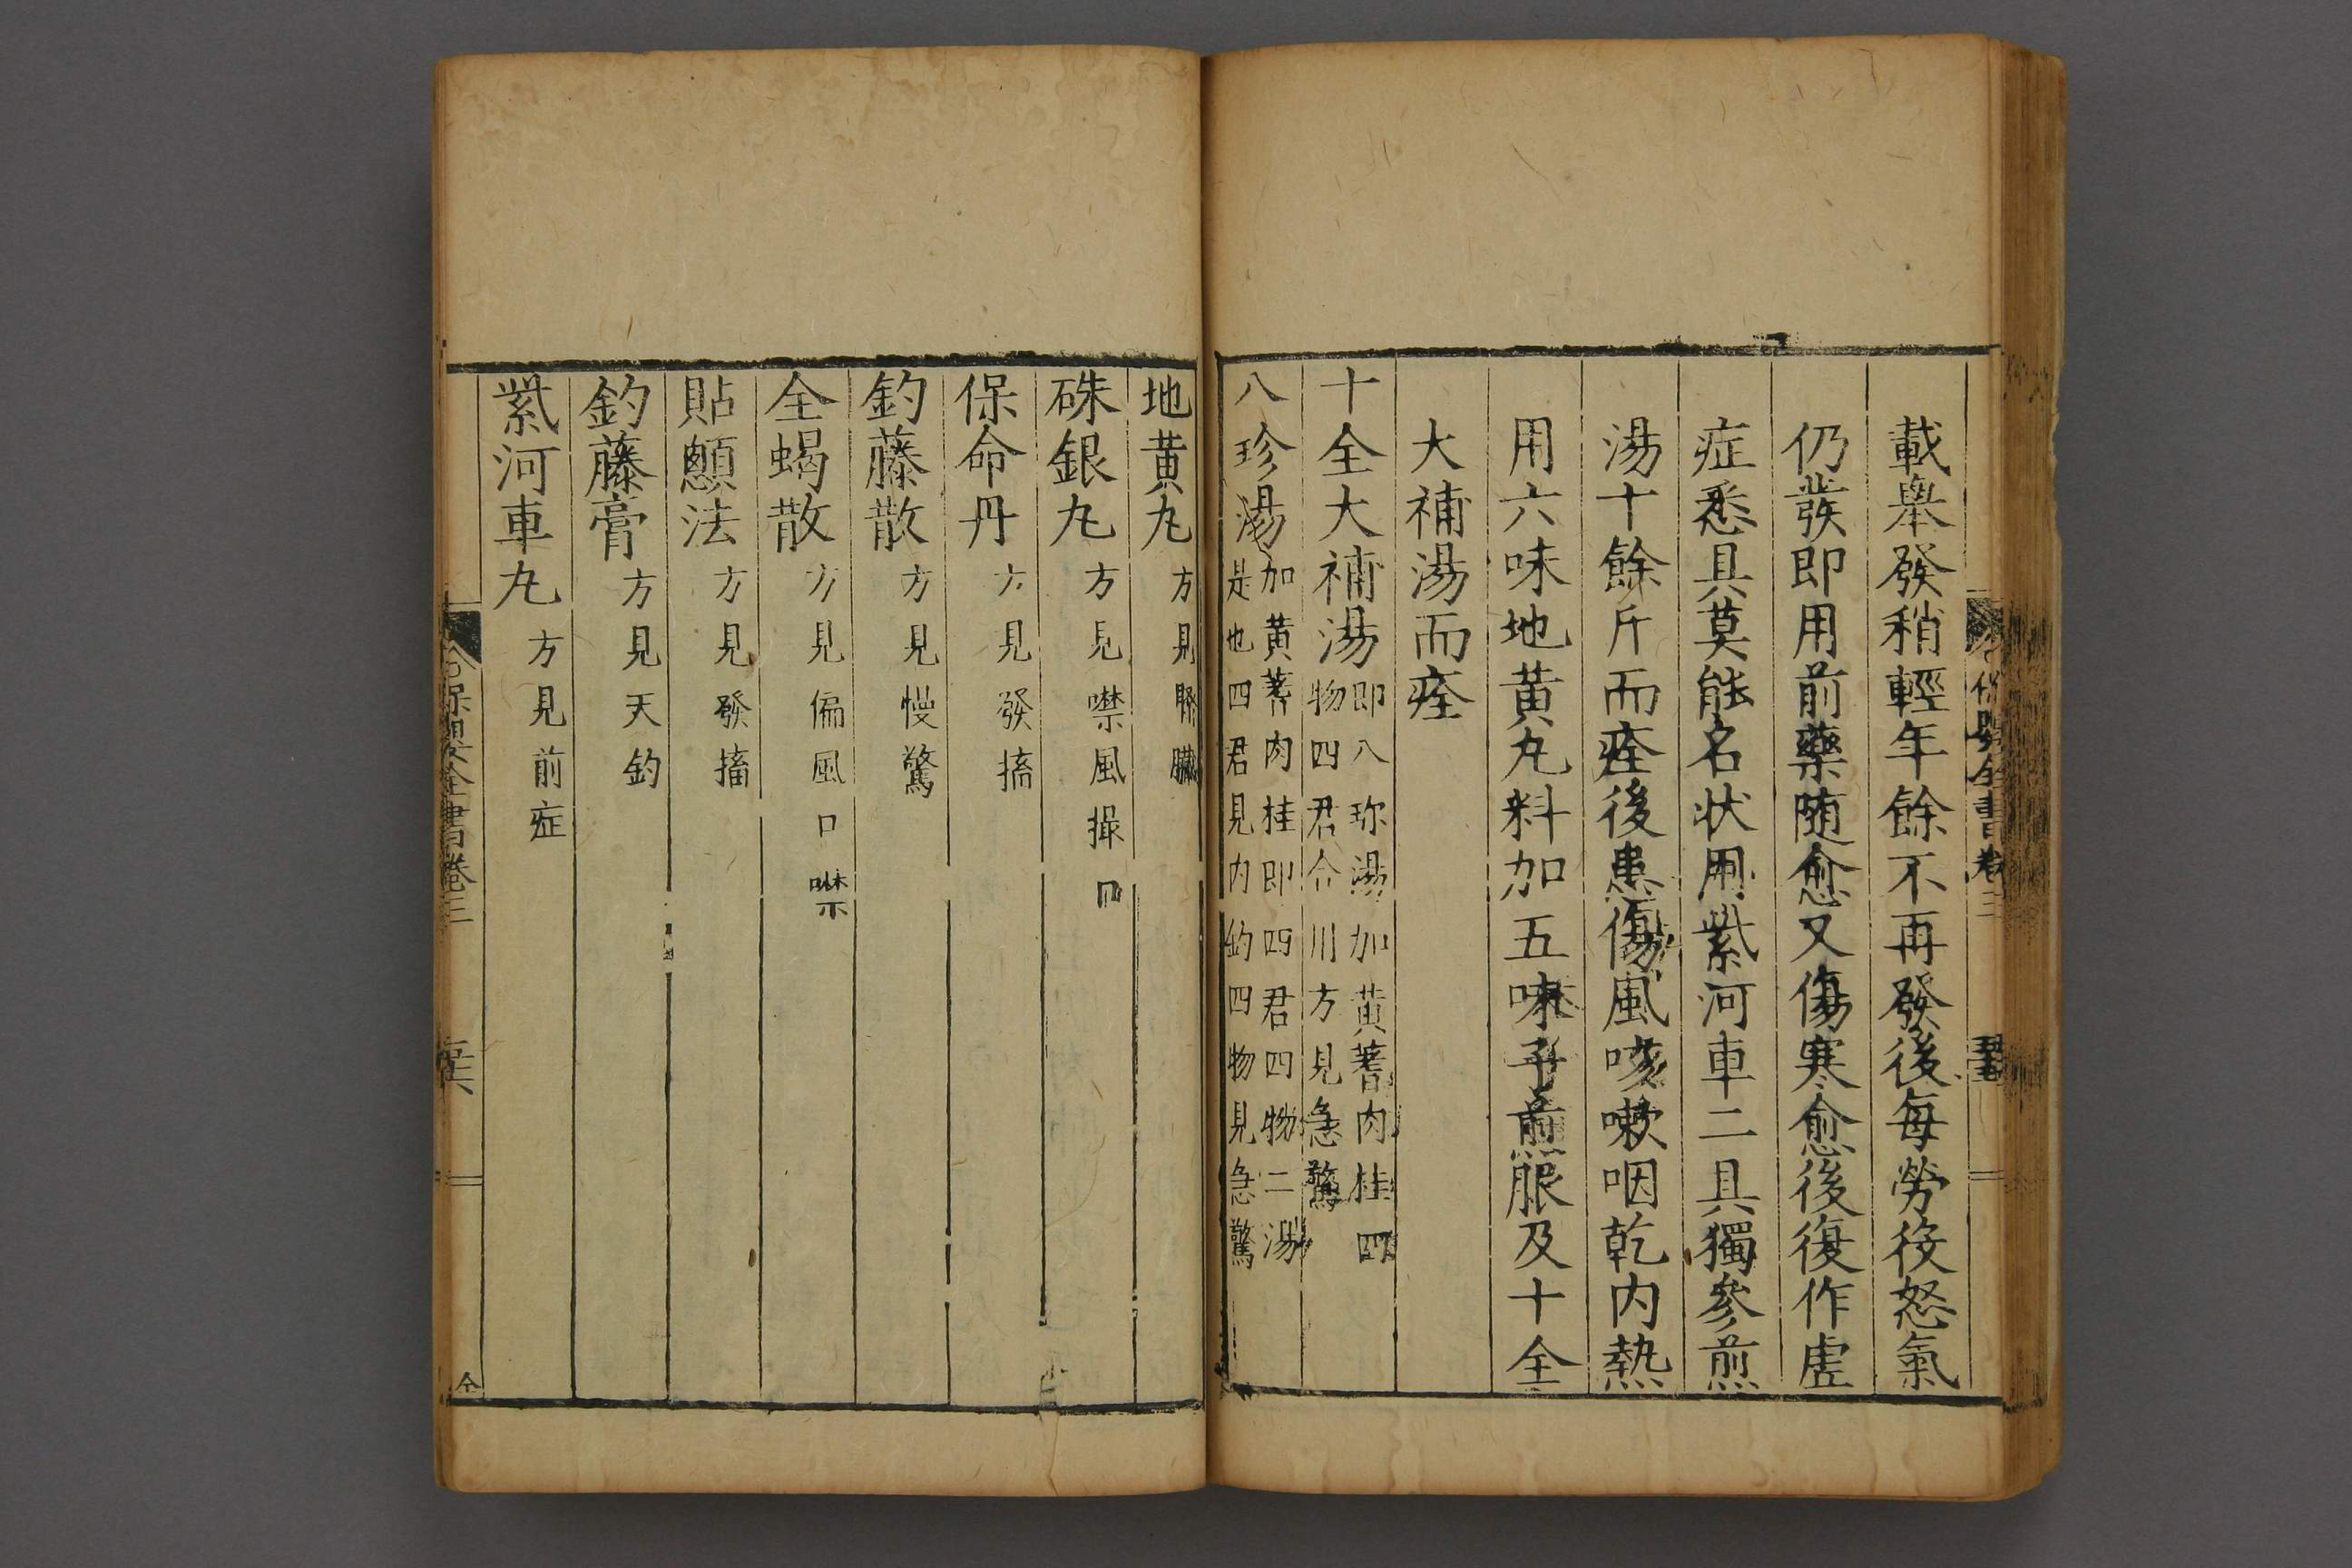 載舉發稍輕年餘不再發後每勞役怒氣
仍發即用前藥随愈又傷寒愈後復作虛
症悉具莫能名状用紫河車二具獨參煎
湯十餘斤而痊後患傷風咳嗽咽乾内熱
用六味地黄丸料加五味子煎服及十全
大補湯而痊
十全大補湯
即八珍湯加黄蓍肉桂四
物四君合川方見急驚
八珍湯
加黄蓍肉桂即四君四物二湯
是也四君見内釣四物見急驚
地黄丸方見臍
硃銀丸方見噤風撮口
保命丹方見發搐
釣藤散方見慢驚
全蝎散方見偏風口噤
貼顖法方見發搐
釣藤膏方見天釣
紫河車丸方見前症
保嬰全書卷三